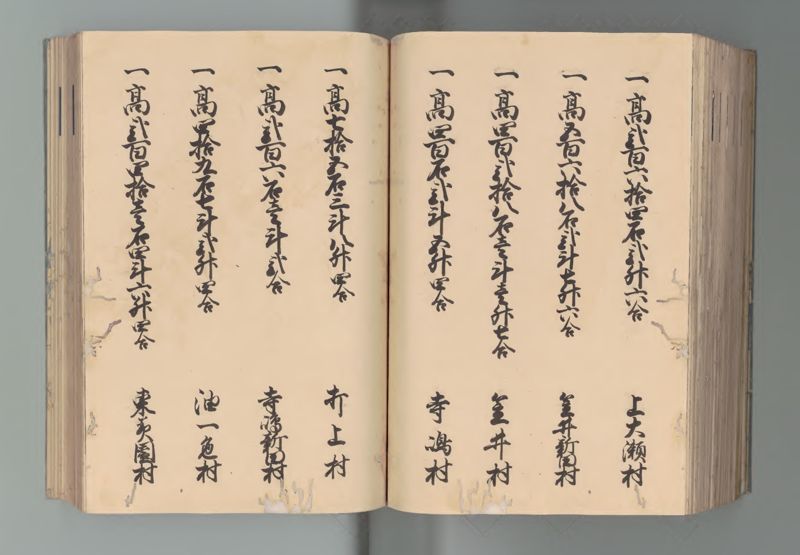 一 高弐百六拾四石弐升六合 上大瀬村
一 高五百六拾八石弐斗七升六合 金井新田村
一 高四百弐拾八石壱斗壱升七合 金井村
一 高四百石弐斗五升四合 寺嶋村
一 高七拾五石三斗八升四合 打上村
一 高弐百六石壱斗弐合 寺嶋新田村
一 高四拾九石七斗弐升四合 油一色村
一 高弐百四拾壱石四斗六升四合 東